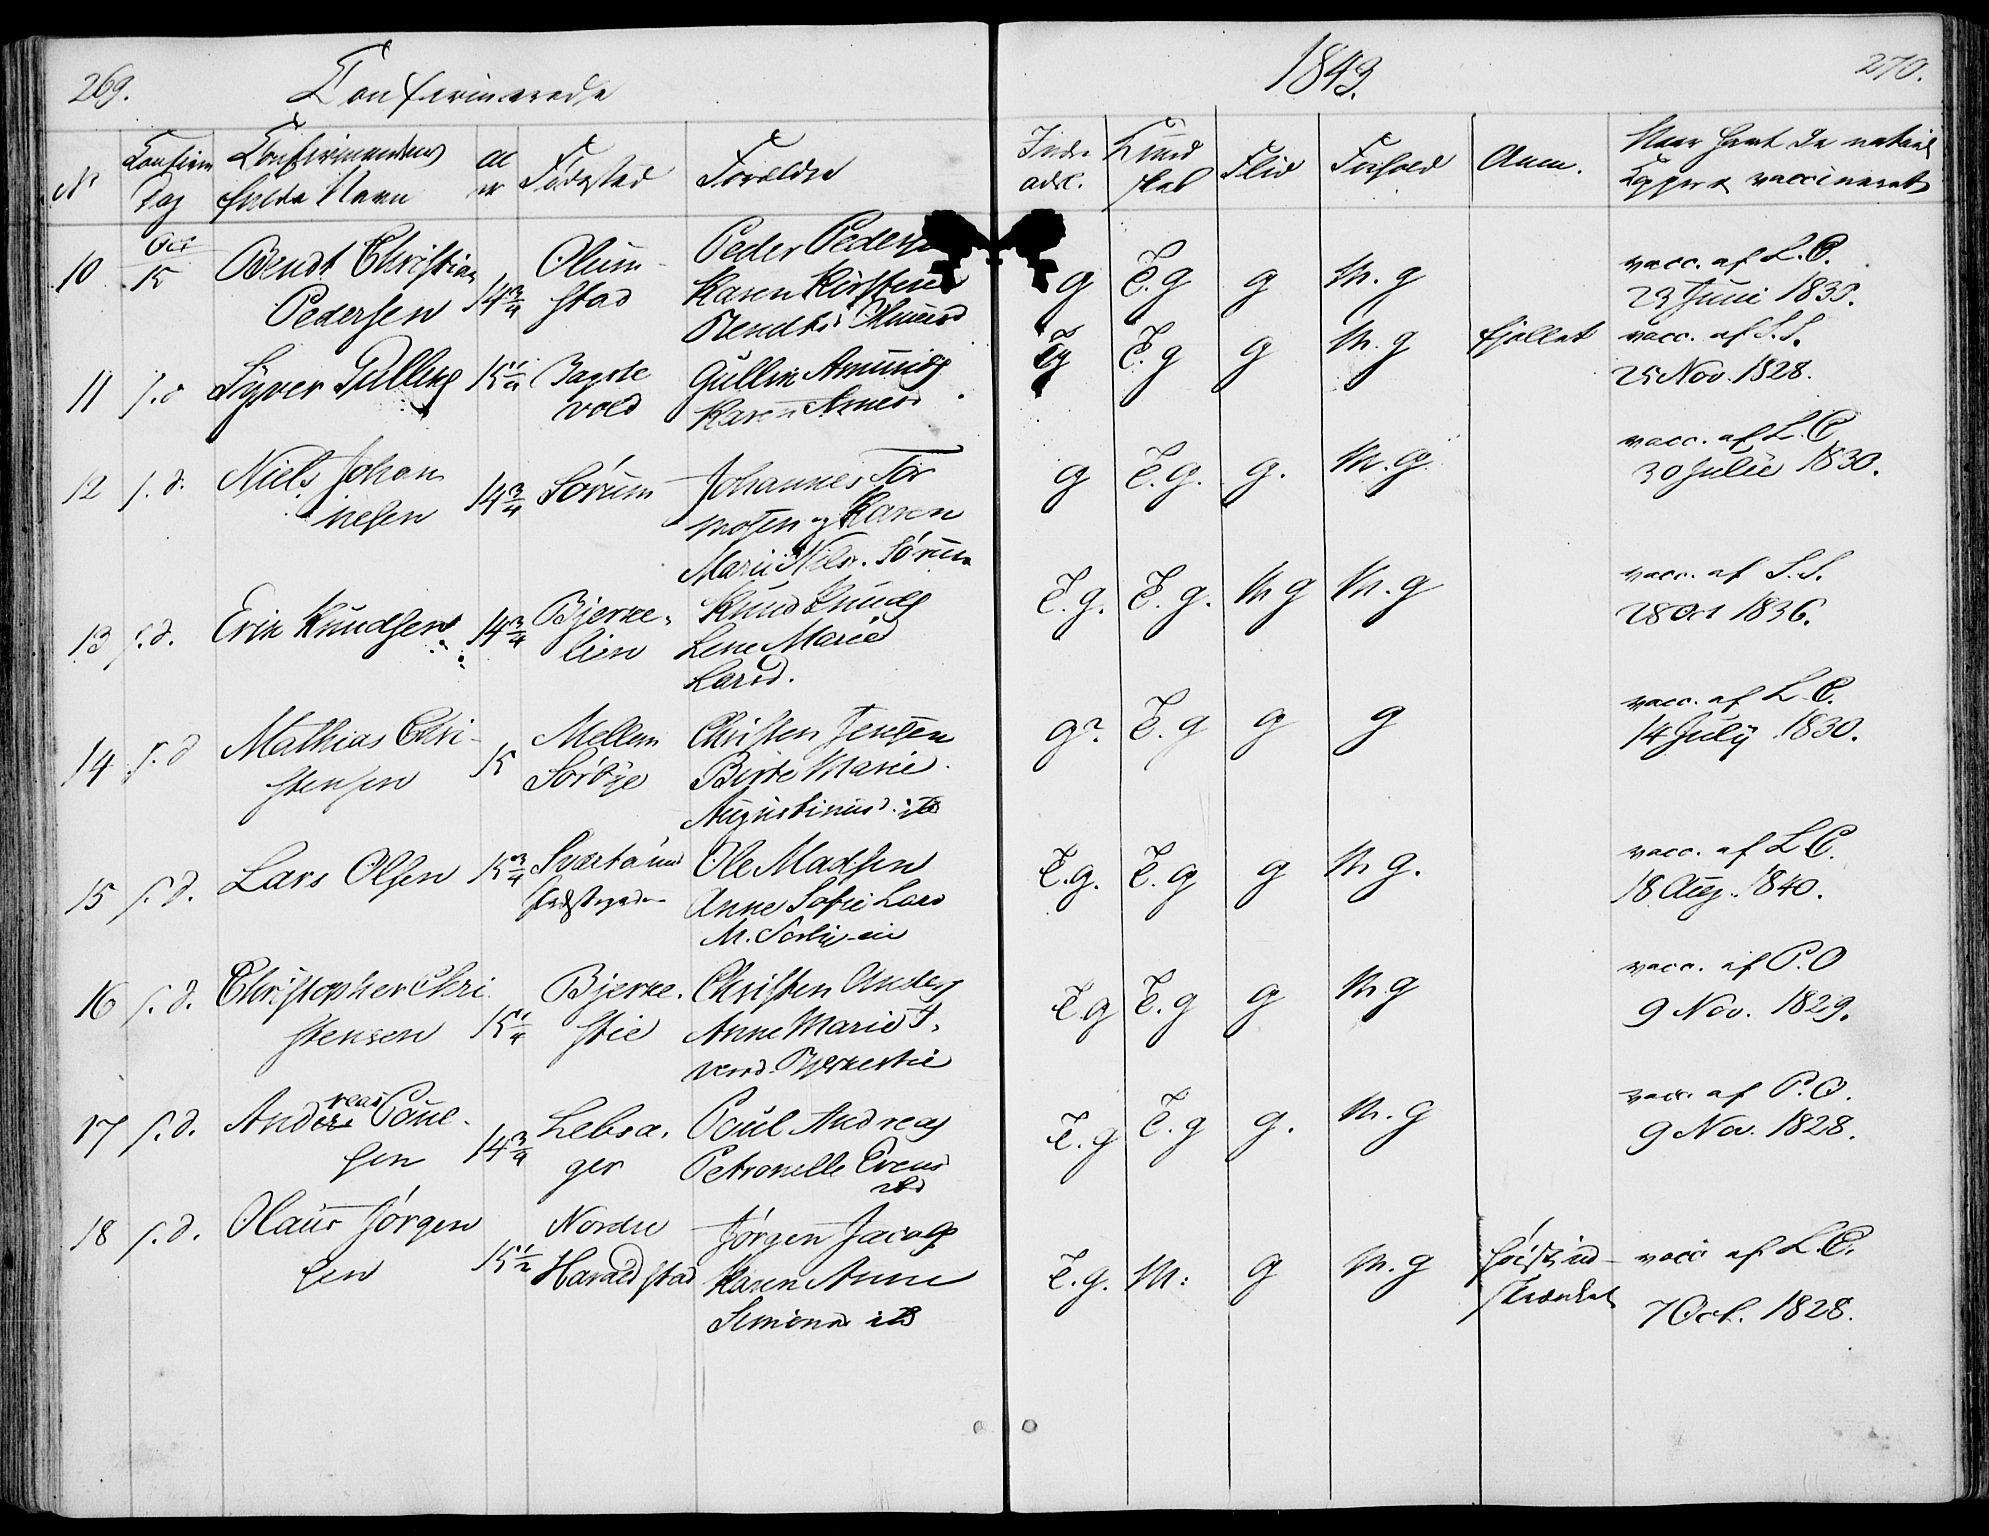 269.
Confirmerede
1843.
270.
No
Confirm
Dag
Confirmandens
fulde Navn
Al
er
Fødested
Forældre
Indr
adsl.
Kund
skab
Flid
Forhold
Anm.
Naar havt de naturl
Kopper & vaccineret
10 Oct 15 Bendt Christian
Pedersen 14 3/4 Olum
stad
Peder Peders
Karen Kirstine
g T.g g M.g
vacc. af L.C.
23 Juni 1830.
11 s.d Syver Gulliks 15 1/4
vold
Gullik Amunds
Karen
Tg T.g g M.g
vacc. af S.S.
25 Nov. 1828.
12 s.d. Niels Johan
nesen 14 3/4 Sørum
Johannes Tor
mosen og Karen
Marie Nils. Sørum
g T.g. g. M.g
vacc. af L.C
30 Julii 1830.
13 s.d. Erik Knudsen 14 3/4 Bjerke
lien
Knud Knuds
Lene Marie
Larsd.
T.g. T.g. M g M.g
vacc. af S.S.
28 Oct 1836.
14 s.d Mathias Chri-
stensen 15 Mellem
Sørbye
Christen Jensen
Birte Marie
Augustinusd. ibd
g? T.g g g
vacc. af L.C.
14 July 1830.
15 s.d. Lars Olsen 15 3/4
Ole Madsen
Anne Sofie Lars
T.g. T.g g M g.
vacc. af L C.
18 Aug. 1840.
16 s.d. Christopher Chri
stensen 15 1/4 Bjerke
stie
Christen Anders
Anne Marie T.
versd. Bjerkestie
T.g T.g g M g
vacc. af P.O
9 Nov. 1829.
17 s.d. Andreas Poul
sen 14 3/4 Lebsa.
ger
Poul Andreas
Petronelle Evens
ibd
T.g T.g g. M.g
vacc. af P.O.
9 Nov. 1828.
18 s.d. Olaus Jørgen
sen 15 1/2 Nordre
Haraldstad
Jørgen Jacobs
Karen Anne
Simons ibd
T.g. M: g M.g
vacc af L.C.
7 Oct. 1828.